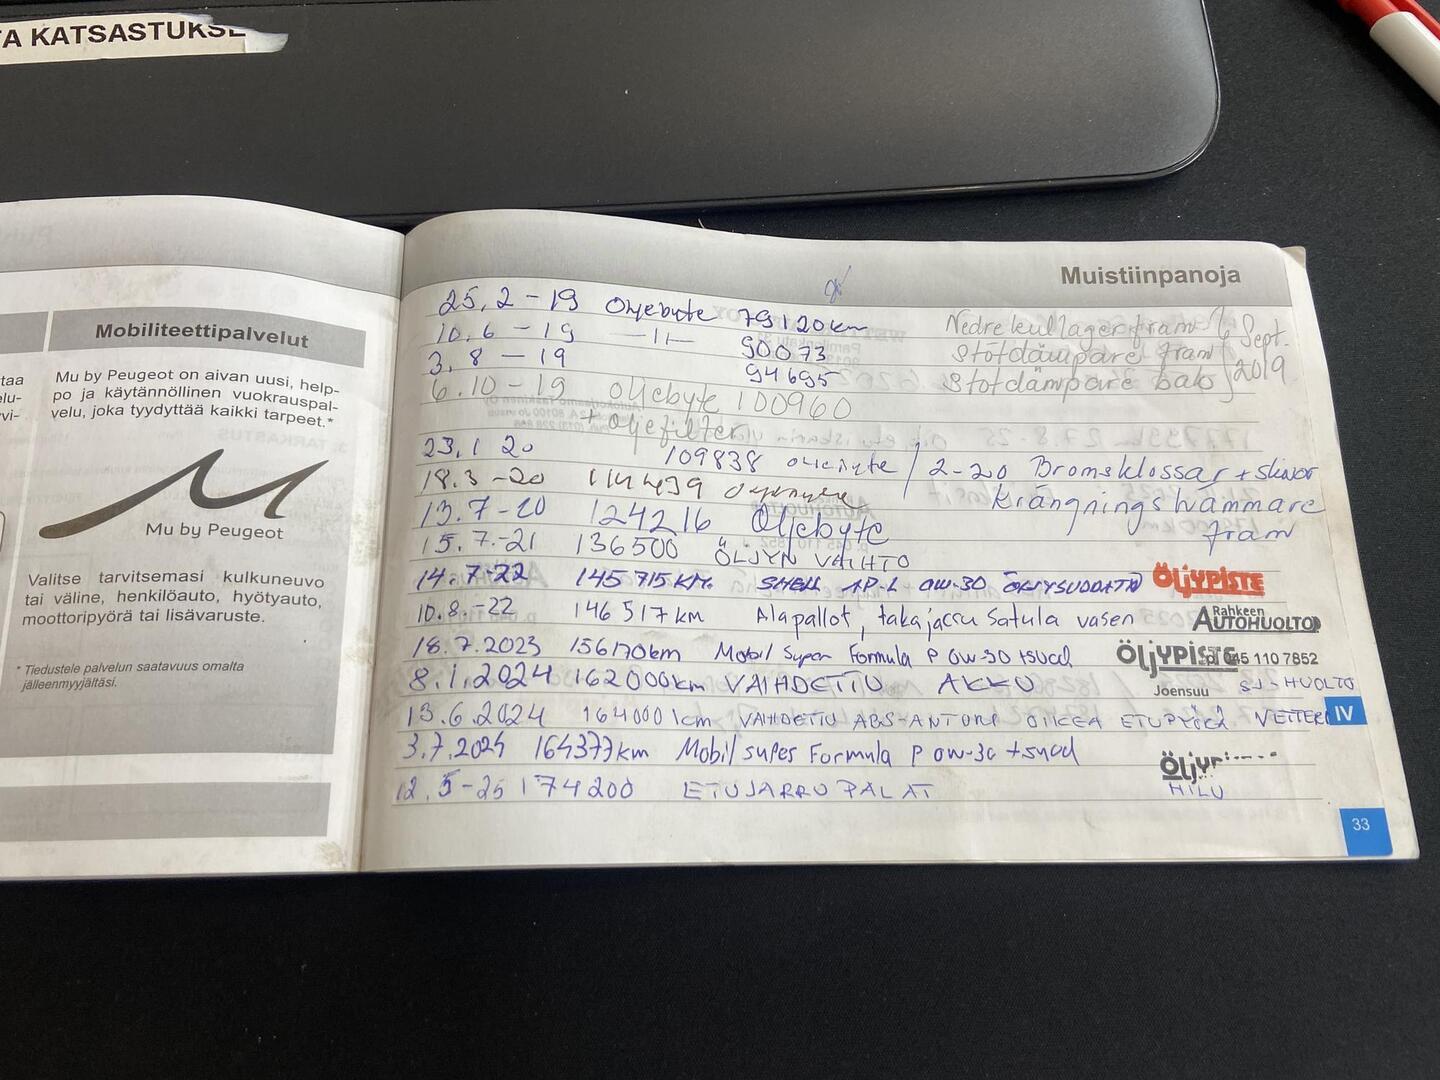 TA KATSASTUKSE
Mobiliteettipalvelut
taa
elu-
vi-
Mu by Peugeot on aivan uusi, help-
po ja käytännöllinen vuokrauspal-
velu, joka tyydyttää kaikki tarpeet.*
Mu by Peugeot
Valitse tarvitsemasi kulkuneuvo
tai väline, henkilöauto, hyötyauto,
moottoripyörä tai lisävaruste.
* Tiedustele palvelun saatavuus omalta
jälleenmyyjältäsi.
Muistiinpanoja
25.2-19 Oljebyte 79120km
10.6-19 —11— 90073
3.8-19 94695
Nedre kullager fram
Stötdämpare fram
Stötdämpare bak
Sept.
2019
6.10-19 oljebyte 100960
+ oljefilter
23.1 20 109838 oljebyte / 2-20 Bromsklossar + skivor
18.3-20 114439 Oljebyte Krängningshämmare
fram
13.7-20 124216 Oljebyte
15.7-21 136500 ÖLJYN VAIHTO
14.7-22 145715KM. SHELL 0W-30 ÖLJYSUODATIN ÖLJYPISTE
10.8.-22 146517km Alapallot, takajarru Satula vasen Rahkeen
AUTOHUOLTO
18.7.2023 156170km Mobil Super Formula P 0W-30 +suod ÖLJYPISTE
p. 045 110 7852
Joensuu
8.1.2024 162000km VAIHDETTU AKKU
13.6.2024 164000km VAIHDETTU ABS-ANTURI OIKEA ETUPYÖRÄ
IV
3.7.2024 164377km Mobil super Formula P 0W-30 +suod
12.5-25 174200 ETUJARRUPALAT HILU
33